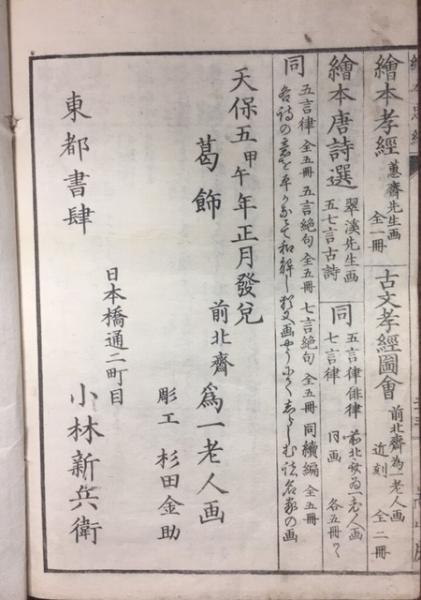 繪本孝經 蕙齋先生画 全一冊
古文孝經圖會 前北齋為一老人画 近刻 全二冊
繪本唐詩選 翠溪先生画 五七言古詩
同 五言律俳律 七言律 前北齋為一老人画 同画 各五冊
同 五言律 全五冊 五言絶句 全五冊 七言絶句 全五冊 同續編 全五冊
各詩の意を平かなにて和解し
天保五甲午年正月發兌
葛飾 前北齋 為一老人画
彫工 杉田金助
日本橋通二町目
東都書肆 小林新兵衛